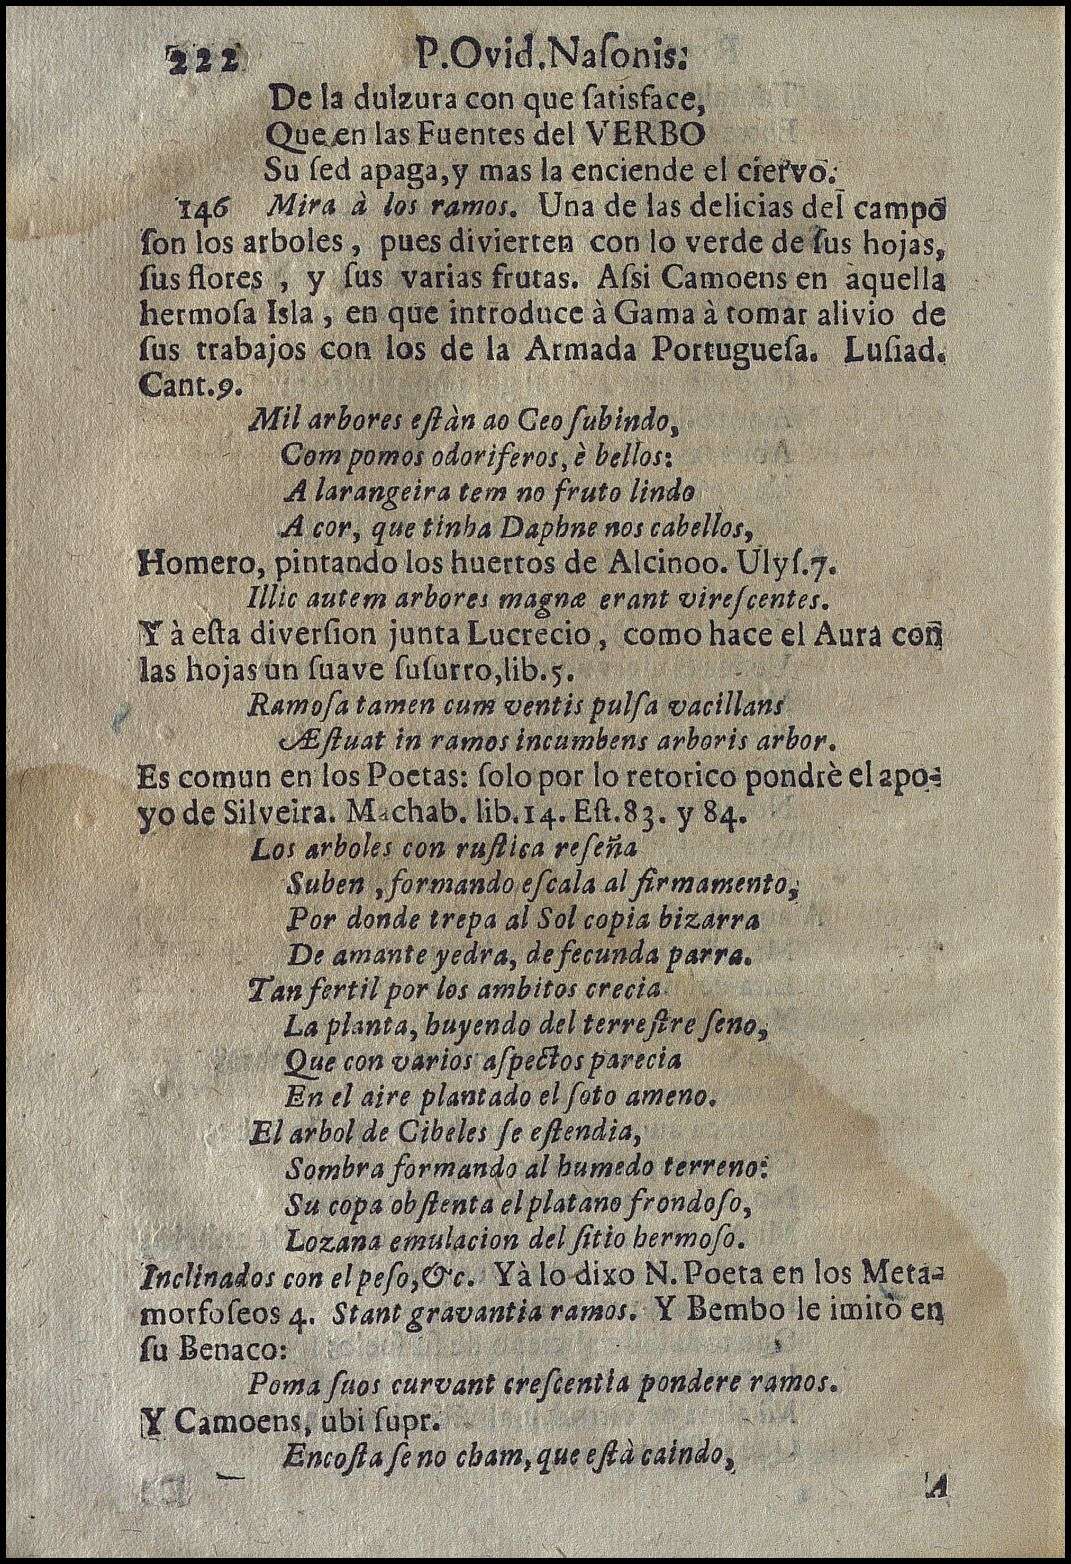 222 P. Ovid. Naſonis:
De la dulzura con que ſatisface,
Que en las Fuentes del VERBO
Su ſed apaga, y mas la enciende el ciervo.
146 Mira à los ramos. Una de las delicias del campo
ſon los arboles, pues divierten con lo verde de ſus hojas,
ſus flores, y ſus varias frutas. Aſsi Camoens en aquella
hermoſa Isla, en que introduce à Gama à tomar alivio de
ſus trabajos con los de la Armada Portugueſa. Luſiad.
Cant. 9.
Mil arbores eſtàn ao Ceo ſubindo,
Com pomos odoriferos, è bellos:
A larangeira tem no fruto lindo
A cor, que tinha Daphne nos cabellos,
Homero, pintando los huertos de Alcinoo. Ulyſ. 7.
Illic autem arbores magnæ erant vireſcentes.
Y à eſta diverſion junta Lucrecio, como hace el Aura con
las hojas un ſuave ſuſurro, lib. 5.
Ramoſa tamen cum ventis pulſa vacillans
Æſtuat in ramos incumbens arboris arbor.
Es comun en los Poetas: ſolo por lo retorico pondrè el apo-
yo de Silveira. Machab. lib. 14. Eſt. 83. y 84.
Los arboles con ruſtica reſeña
Suben, formando eſcala al firmamento,
Por donde trepa al Sol copia bizarra
De amante yedra, de fecunda parra.
Tan fertil por los ambitos crecia
La planta, huyendo del terreſtre ſeno,
Que con varios aſpectos parecia
En el aire plantado el ſoto ameno.
El arbol de Cibeles ſe eſtendia,
Sombra formando al humedo terreno:
Su copa obſtenta el platano frondoſo,
Lozana emulacion del ſitio hermoſo.
Inclinados con el peſo, &c. Yà lo dixo N. Poeta en los Meta-
morfoſeos 4. Stant gravantia ramos. Y Bembo le imitò en
ſu Benaco:
Poma ſuos curvant creſcentia pondere ramos.
Y Camoens, ubi ſupr.
Encoſta ſe no cham, que eſtà caindo,
A